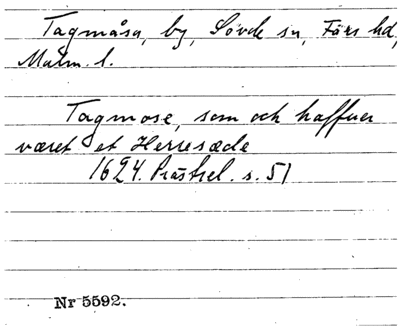 Tagmåsa, by, Sövde sn, Färs hd,
Malm. l.
Tagmose, som och haffuer
været et Herresæde
1624. Prästrel. s. 51
Nr 5592.